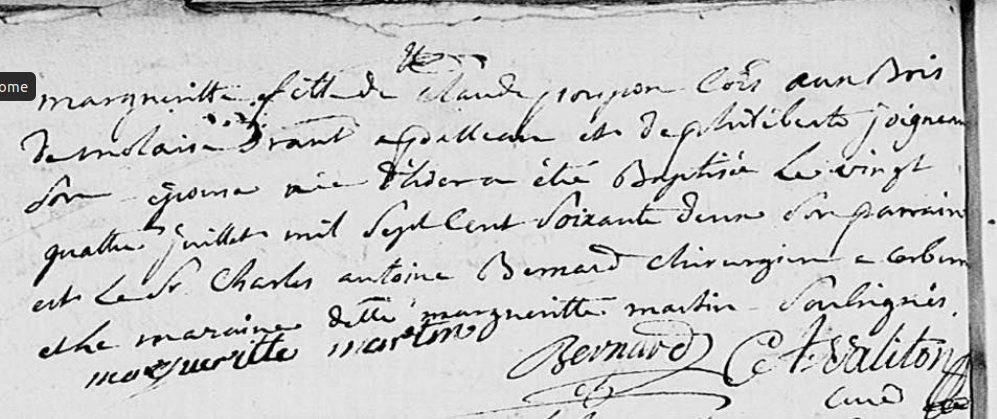 ome
margueritte fille de Claude poupon Cois aux Bois
de molaise et de philiberte joigneau
son epouse née d'hier a été Baptisée Le vingt
quattre juillet mil sept Cent soixante deux son parrain
est Le Sr Charles antoine Bernard chirurgien a corbero
et la maraine dette margueritte martin soubsignés.
margueritte martin Bernard valiton
curé